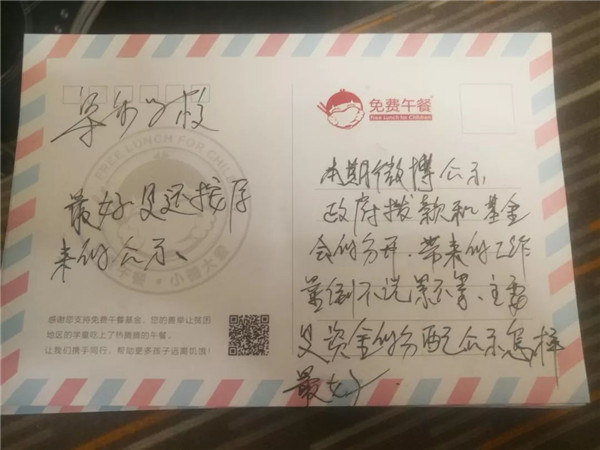 学校
FREE LUNCH FOR CHIL
午餐 · 小善大爱
最好是还按原
来的公示、
感谢您支持免费午餐基金，您的善举让贫困
地区的学童吃上了热腾腾的午餐，
让我们携手同行，帮助更多孩子远离饥饿！
免费午餐
Free Lunch for Children
本期微博公示
政府拨款和基金
会的分开、带来的工作
量倒不说累不累、主要
是资金的分配公示怎样
最好